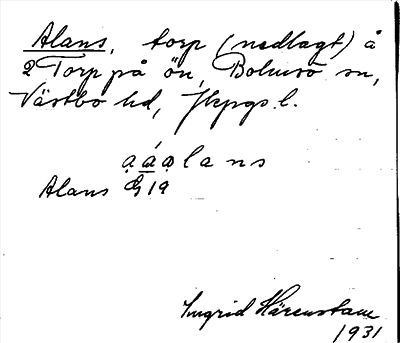 Alans, torp (nedlagt) å
2 Torp på ön, Bolmsö sn,
Västbo hd, Jkpgs l.
a̤ á̱ a̤ l a n s
Alans G 19
Ingrid Härenstam
1931